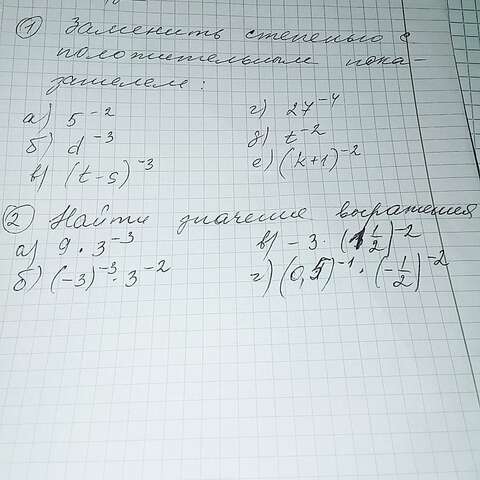 ① Заменить степенью с
положительным пока-
зателем:
а) 5⁻² г) 27⁻⁴
б) d⁻³ д) t⁻²
в) (t-s)⁻³ е) (k+1)⁻²
② Найти значение выражения
а) 9 · 3⁻³ в) -3 · (1 1/2)⁻²
б) (-3)⁻³ · 3⁻² г) (0,5)⁻¹ · (-1/2)⁻²